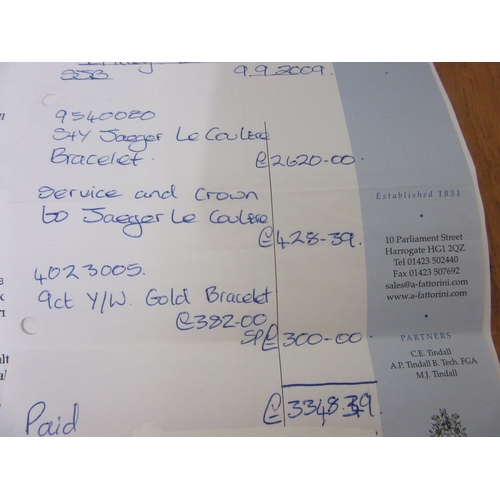 SSB 9.9.2009.
9540080
Sty Jaeger Le Coultre
Bracelet. £2620-00.
Service and Crown
to Jaeger Le Coultre
£428-39.
4023005.
9ct Y/W. Gold Bracelet
£382-00
SP£300-00.
£3348.39.
Paid
Established 1831
10 Parliament Street
Harrogate HG1 2QZ
Tel 01423 502440
Fax 01423 507692
sales@a-fattorini.com
www.a-fattorini.com
PARTNERS
C.E. Tindall
A.P. Tindall B. Tech. FGA
M.J. Tindall